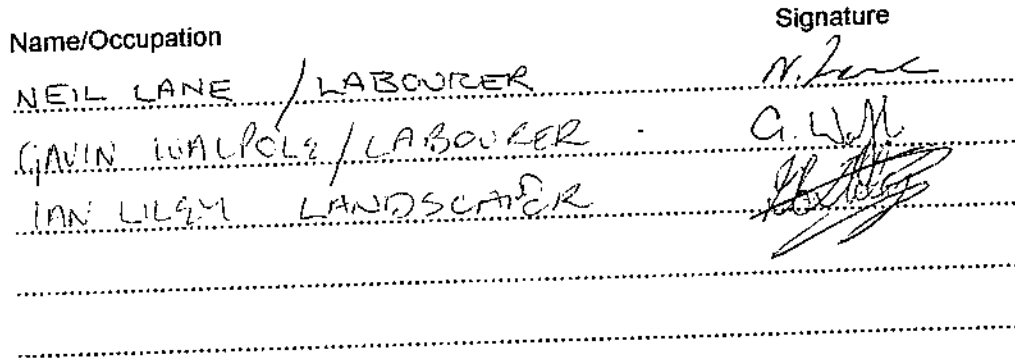 Name/Occupation Signature
NEIL LANE / LABOURER N. Lane
GAVIN WALPOLE / LABOURER G. W
IAN LILEY LANDSCAPER